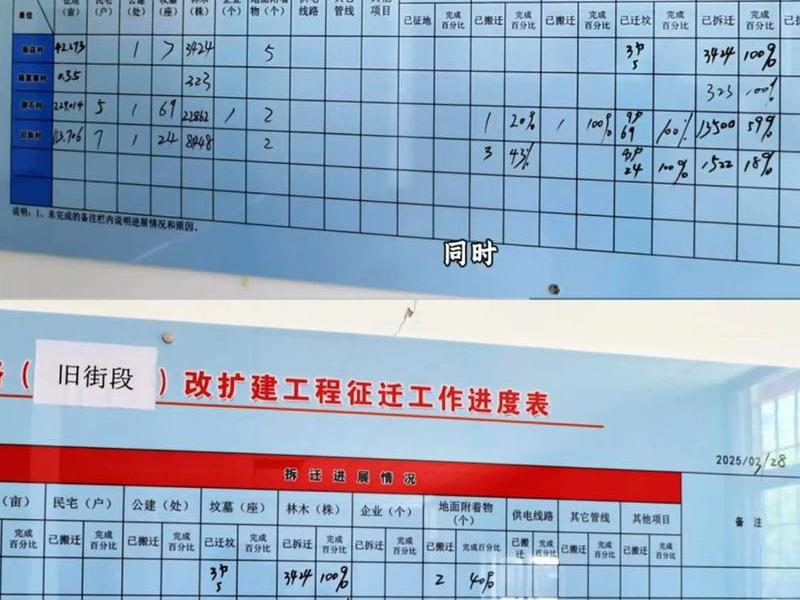 单位 (亩) (户) (处) (座) (株) (个) 物(个) 线路 管线 项目 已征地 完成百分比 已搬迁 完成百分比 已搬迁 完成百分比 已迁坟 完成百分比 已拆迁 完成百分比
42.273 1 7 3424 5 3424 100%
0.35 323 323 100%
229.014 5 1 69 22862 1 2 1 20% 1 100% 69 100% 13500 59%
旧街村 113.706 7 1 24 8448 2 3 43% 24 100% 1522 18%
说明：1、未完成的备注栏内说明进展情况和原因。
同时
（旧街段）改扩建工程征迁工作进度表
2025/03/28
拆迁进展情况
备注
（亩） 民宅（户） 公建（处） 坟墓（座） 林木（株） 企业（个） 地面附着物（个） 供电线路 其它管线 其他项目
完成百分比 已搬迁 完成百分比 已搬迁 完成百分比 已迁坟 完成百分比 已拆迁 完成百分比 已拆迁 完成百分比 已搬迁 完成百分比 已搬迁 完成百分比 已搬迁 完成百分比 已搬迁 完成百分比
3424 100% 2 40%